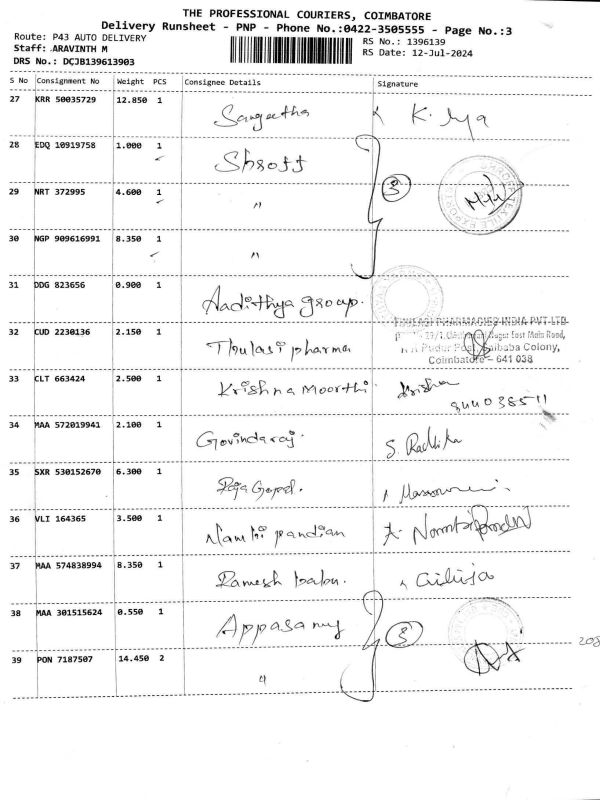 THE PROFESSIONAL COURIERS, COIMBATORE
Delivery Runsheet - PNP - Phone No.:0422-3505555 - Page No.:3
Route: P43 AUTO DELIVERY
RS No.: 1396139
Staff: ARAVINTH M
RS Date: 12-Jul-2024
DRS No.: DCJB139613903
S No Consignment No Weight PCS Consignee Details Signature
27 KRR 50035729 12.850 1 Sangeetha
28 EDQ 10919758 1.000 1 Shroff
3
29 NRT 372995 4.600 1 "
30 NGP 909616991 8.350 1 "
31 DDG 823656 0.900 1 Aadithya group.
THULASI PHARMACIES INDIA PVT LTD
East Main Road,
32 CUD 2230136 2.150 1 Thulasi pharma
Saibaba Colony,
Coimbatore - 641 038
33 CLT 663424 2.500 1 Krishna Moorthi
34 MAA 572019941 2.100 1 Govindaraj. S. Radhika
35 SXR 530152670 6.300 1 Raja Gopal.
36 VLI 164365 3.500 1 Nambi pandian
37 MAA 574838994 8.350 1 Ramesh babu. Girija
38 MAA 301515624 0.550 1 Appasamy
3
208
39 PON 7187507 14.450 2 "